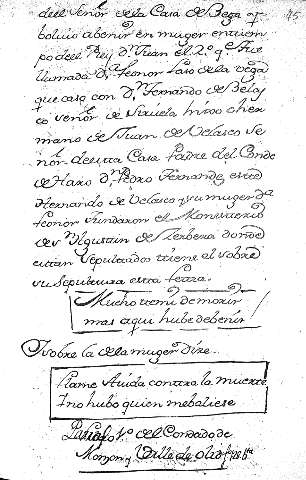 del Señor de la Casa de Bega q.
bolvio abenir en muger en tiem
po del Rey Dn Juan el 2.º que fue
llamada Dª Leonor Laso de la Vega
que caso con Dn Fernando de Belas
co señor de Siruela hijo o her
mano de Juan de Velasco Se
ñor de esta Casa Padre del Conde
de Haro Dn Pedro Fernandez este
Hernando de Velasco y su muger Dª
Leonor fundaron el Monesterio
de Sn Agustin de donde
estan Sepultados tiene el sobre
su sepultura esta letra.
Mucho temi de morir
mas aqui hube de benir
Y sobre la de la muger Dize
Llame Aiuda contra la muerte
I no hubo quien me baliese
del Condado de